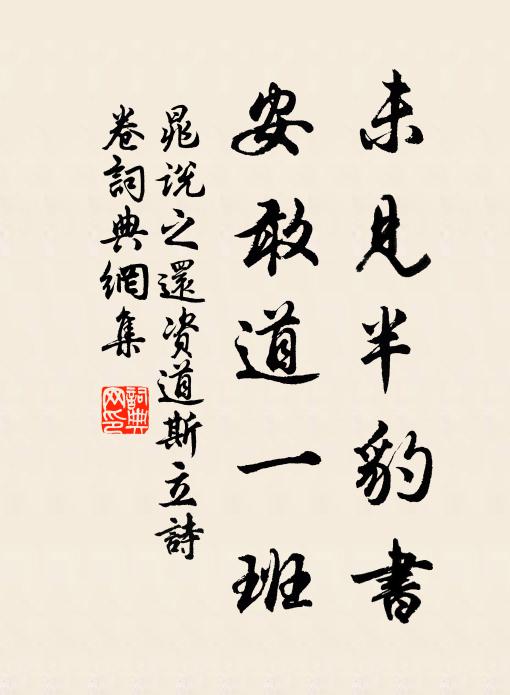 未見半豹書
安敢道一班
晁說之還資道斯立詩
卷詞典網集
詞典網印